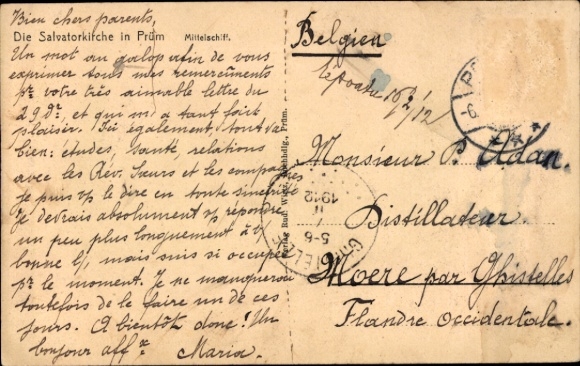 Bien chers parents,
Die Salvatorkirche in Prüm Mittelschiff.
Un mot au galop afin de vous
exprimer tous mes remerciments
pr votre très aimable lettre du
29 dr, et qui m'a tant fait
plaisir. Ici également, tout va
bien: études, santé, relations
avec les Rév. Sœurs et les compagnes
je puis vs le dire en toute sincérité
Je devrais absolument vs répondre
un peu plus longuement à
bonne mais suis si occupée
pr le moment. Je ne manquerai
toutefois de le faire un de ces
jours. A bientôt donc! Un
bonjour aff.
Maria.
Verlag Rud. Prüm.
Belgien
Monsieur P. Adan.
Distillateur.
Moere par Ghistelles
Flandre Occidentale.
GHISTELLES
5-6
1912